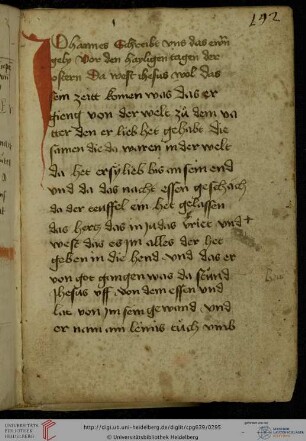 192
Johannes Schreibt vns das ewn
gely Vor den hayligen tagen der
ostern Da west ihesus wol das
sein zeitt komen was das er
gieng von der welt zů dem va
tter den er lieb het gehabt die
sainen die da waren in der welt
da het er sy lieb bis an sein end
vnd da das nacht essen geschach
da der teuffel ein het gelassen
das hertz das in Judas vnd
west das es im alles der het
geben in die hend vnd das er
von got gangen was da stůnd
Jhesus vff von dem essen vnd
lat von im sein gewand vnd
er nam ain leinis tůch vnd
http://digi.ub.uni-heidelberg.de/diglit/cpg639/0395
© Universitätsbibliothek Heidelberg
UNIVERSITÄTS-
BIBLIOTHEK
HEIDELBERG